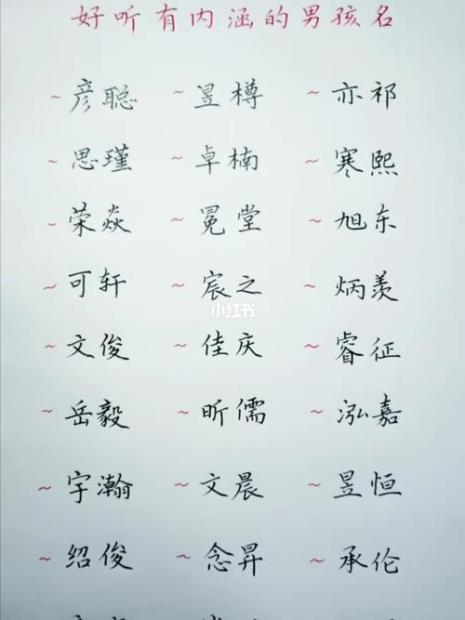 好听有内涵的男孩名
~彦聪 ~昱樽 ~亦祁
~思瑾 ~卓楠 ~寒熙
~荣焱 ~冕堂 ~旭东
~可轩 ~宸之 ~炳羡
小红书
~文俊 ~佳庆 ~睿征
~岳毅 ~昕儒 ~泓嘉
~宇瀚 ~文晨 ~昱恒
~绍俊 ~念昇 ~承伦